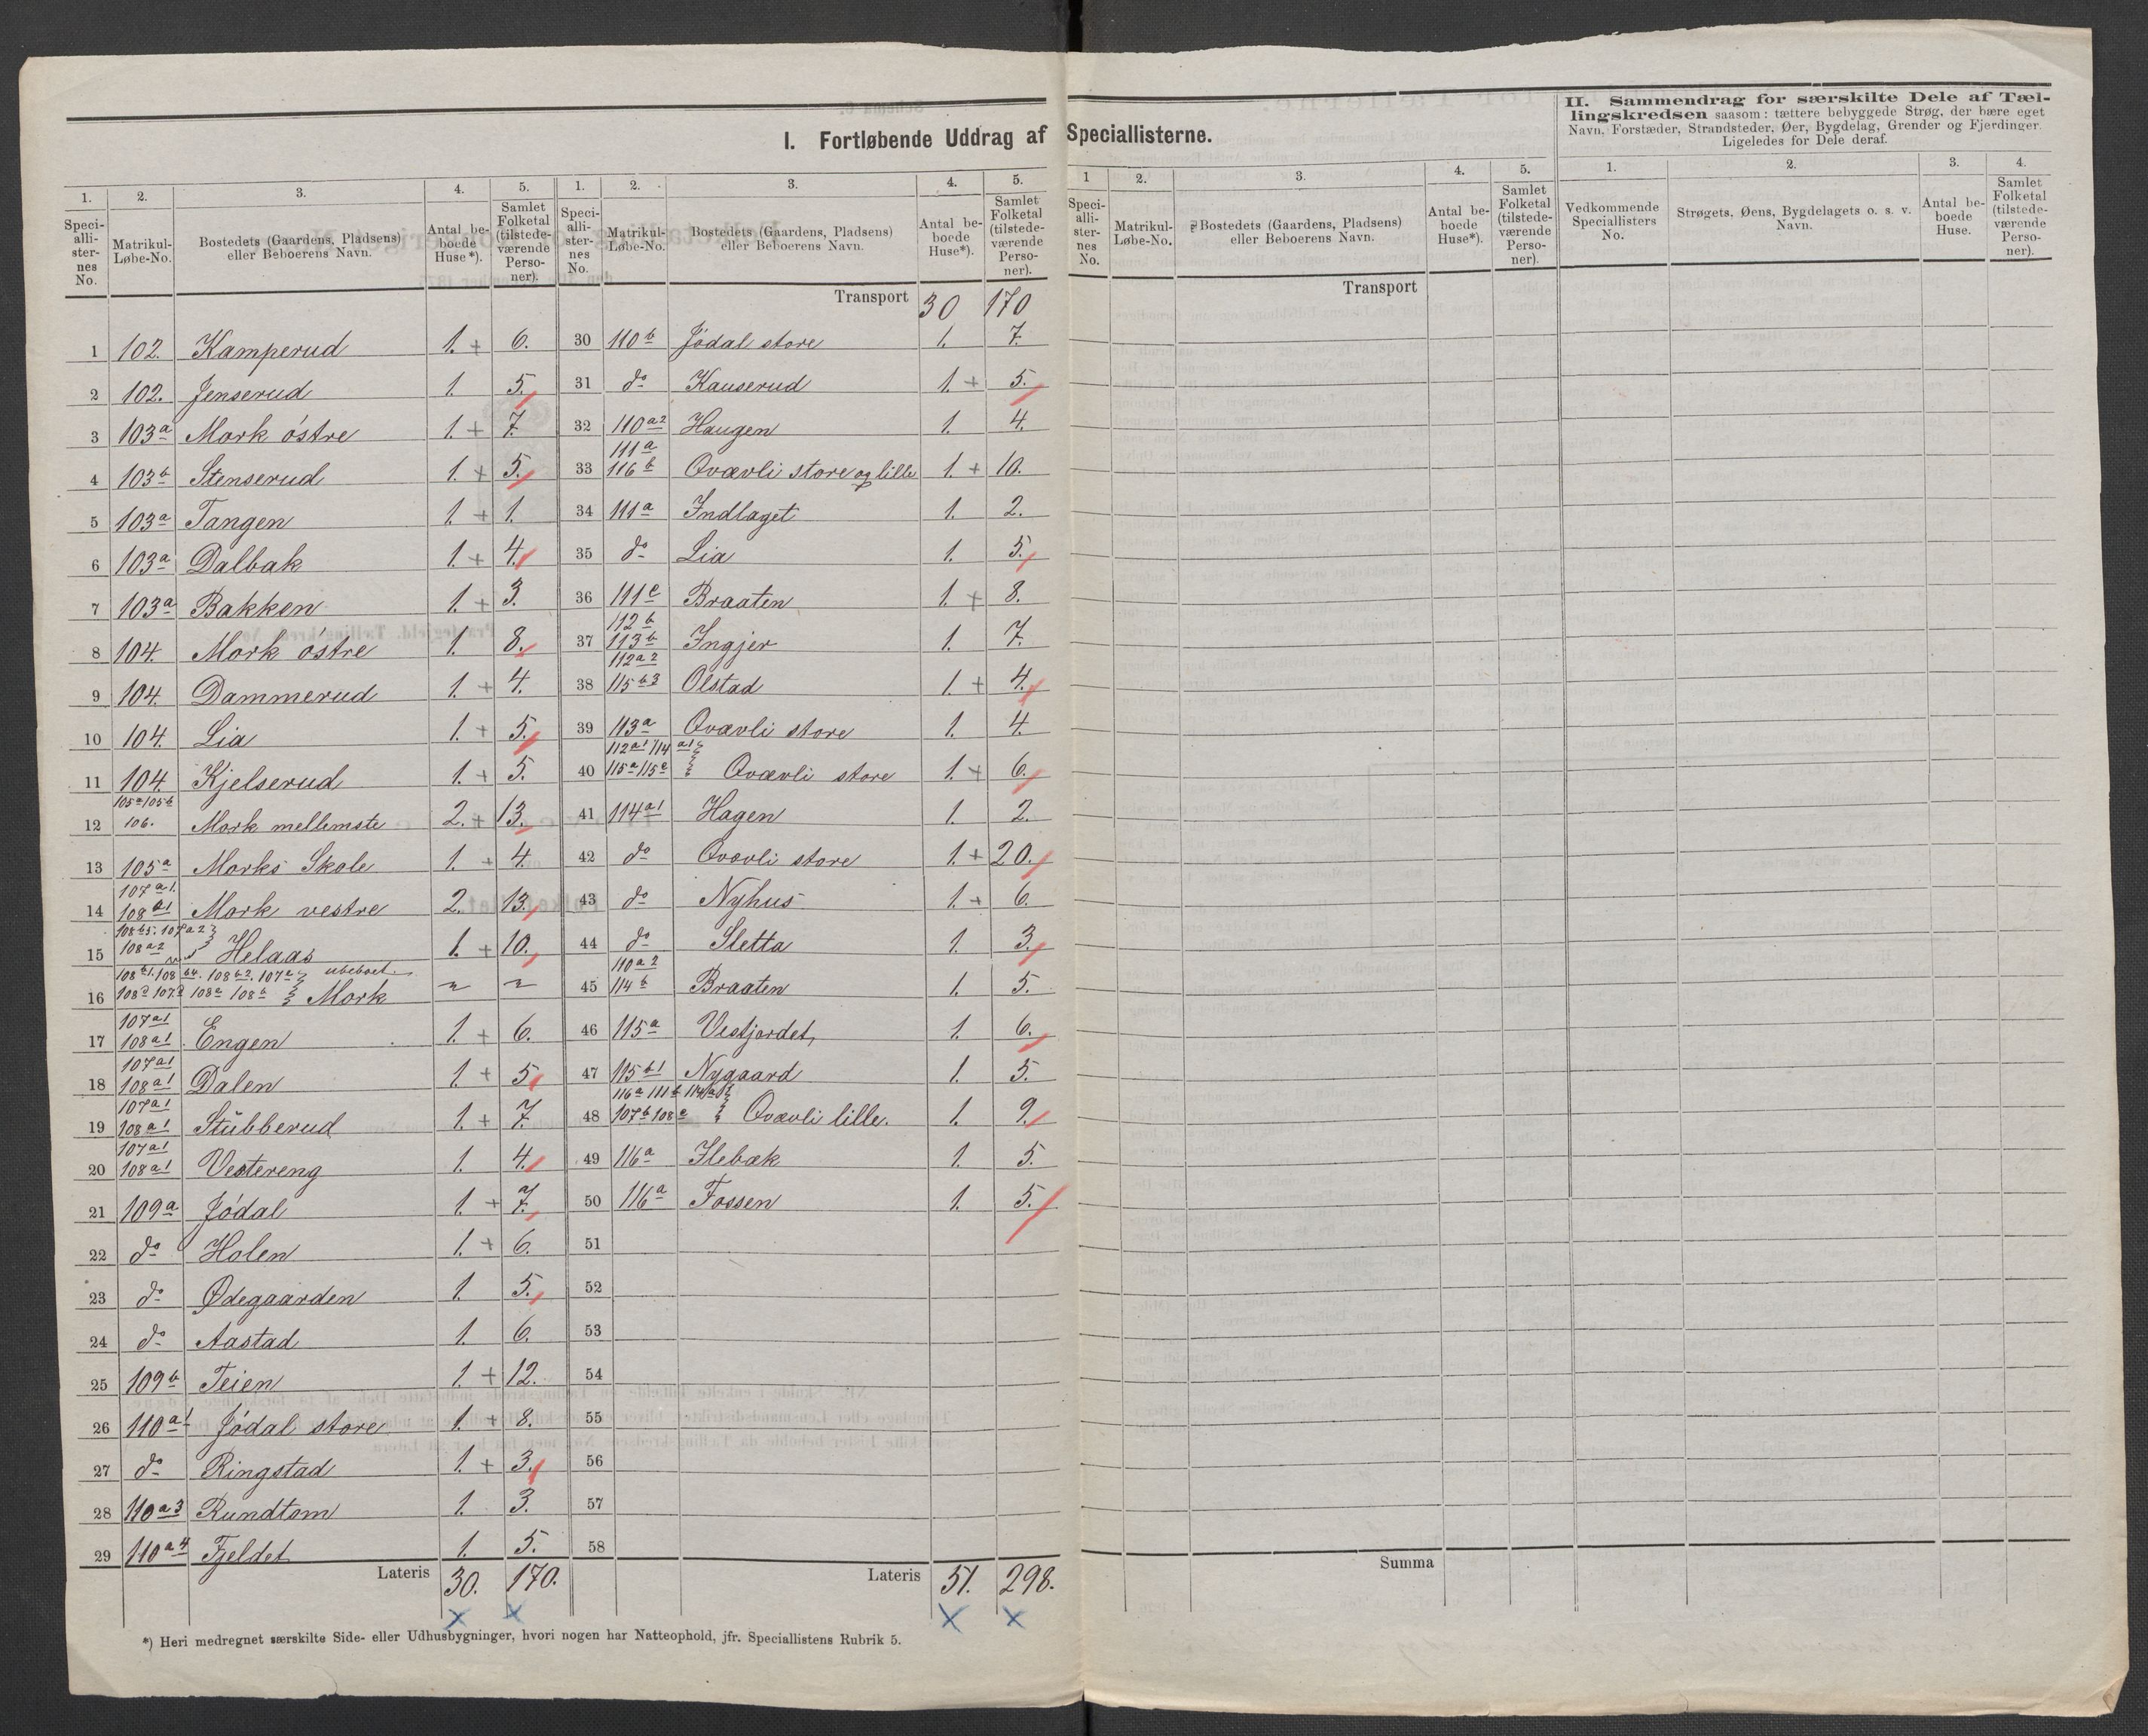 I. Fortløbende Uddrag af Speciallisterne.
II. Sammendrag for særskilte Dele af Tæl-
lingskredsen saasom: tættere bebyggede Strøg, der bære eget
Navn, Forstæder, Strandsteder, Øer, Bygdelag, Grender og Fjerdinger.
Ligeledes for Dele deraf.
1. 2. 3. 4. 5. 1. 2. 3. 4. 5. 1 2. 3. 4. 5. 1. 2. 3. 4.
Speci-alli-ster-nes No. Matrikul-Løbe-No. Bostedets (Gaardens, Pladsens) eller Beboerens Navn. Antal be-boede Huse*). Samlet Folketal (tilstede-værende Perso-ner).
Speci-alli-ster-nes No. Matrikul-Løbe-No. Bostedets (Gaardens, Pladsens) eller Beboerens Navn. Antal be-boede Huse*). Samlet Folketal (tilstede-værende Perso-ner).
Speci-alli-ster-nes No. Matrikul-Løbe-No. Bostedets (Gaardens, Pladsens) eller Beboerens Navn. Antal be-boede Huse*). Samlet Folketal (tilstede-værende Perso-ner).
Vedkommende Speciallisters No. Strøgets, Øens, Bygdelagets o. s. v. Navn. Antal be-boede Huse. Samlet Folketal (tilstede-værende Perso-ner).
1 102. Kamperud 1. + 6.
2 102. Jenserud 1. 5.
3 103a Mork östre 1. + 7.
4 103b Stenserud 1. + 5.
5 103a Tangen 1. + 1.
6 103a Dalbak 1. + 4.
7 103a Bakken 1. + 3.
8 104. Mork östre 1. 8.
9 104. Dammerud 1. + 4.
10 104. Lia 1. + 5.
11 104. Kjelserud 1. + 5.
105a 105b
12 106. Mork mellemste 2. + 13.
13 105a Morks Skole 1. + 4.
107a1.
14 108a1 Mork vestre 2. 13.
108b5. 107a2
15 108a2 Helaas 1. + 10.
108b1. 108b4. 108b2. 107e ubeboet.
16 Mork
107a1
17 108a1 Engen 1. + 6.
107a1
18 108a1 Dalen 1. + 5.
107a1
19 108a1 Stubberud 1. + 7.
107a1
20 108a1 Vestereng 1. 4.
21 109a Jödal 1. + 7.
22 do Holen 1. + 6.
23 do Ødegaarden 1. 5.
24 do Aastad 1. 6.
25 109b Teien 1. + 12.
26 110a1 Jödal store 1. + 8.
27 do Ringstad 1. + 3.
28 110a3 Rundtom 1. 3.
29 110a4 Fjeldet 1. 5.
Lateris 30. 170.
Transport 30 170
30 110b Jödal store 1. 7.
31 do Kauserud 1. + 5.
32 110a2 Haugen 1. 4.
111a
33 116b Qvævli store og lille 1. + 10.
34 111a Indlaget 1. 2.
35 do Lia 1. 5.
36 111c Braaten 1. + 8.
112b
37 113b Ingjer 1. 7.
112a2
38 115b3 Olstad 1. + 4.
39 113a Qvævli store 1. 4.
112a1 114a1
40 115a 115c Qvævli store 1. + 6.
41 114a1 Hagen 1. 2.
42 do Qvævli store 1. + 20.
43 do Nyhus 1. + 6.
44 do Sletta 1. 3.
110a2
45 114b Braaten 1. 5.
46 115a Vestjordet, 1. 6.
47 115b1 Nygaard 1. 5.
116a 111b
48 107b 108c Qvævli lille. 1. 9.
49 116a Ilebæk 1. 5.
50 116a Fossen 1. 5.
51
52
53
54
55
56
57
58
Lateris 51. 298.
Transport
Summa
*) Heri medregnet særskilte Side- eller Udhusbygninger, hvori nogen har Natteophold, jfr. Speciallistens Rubrik 5.